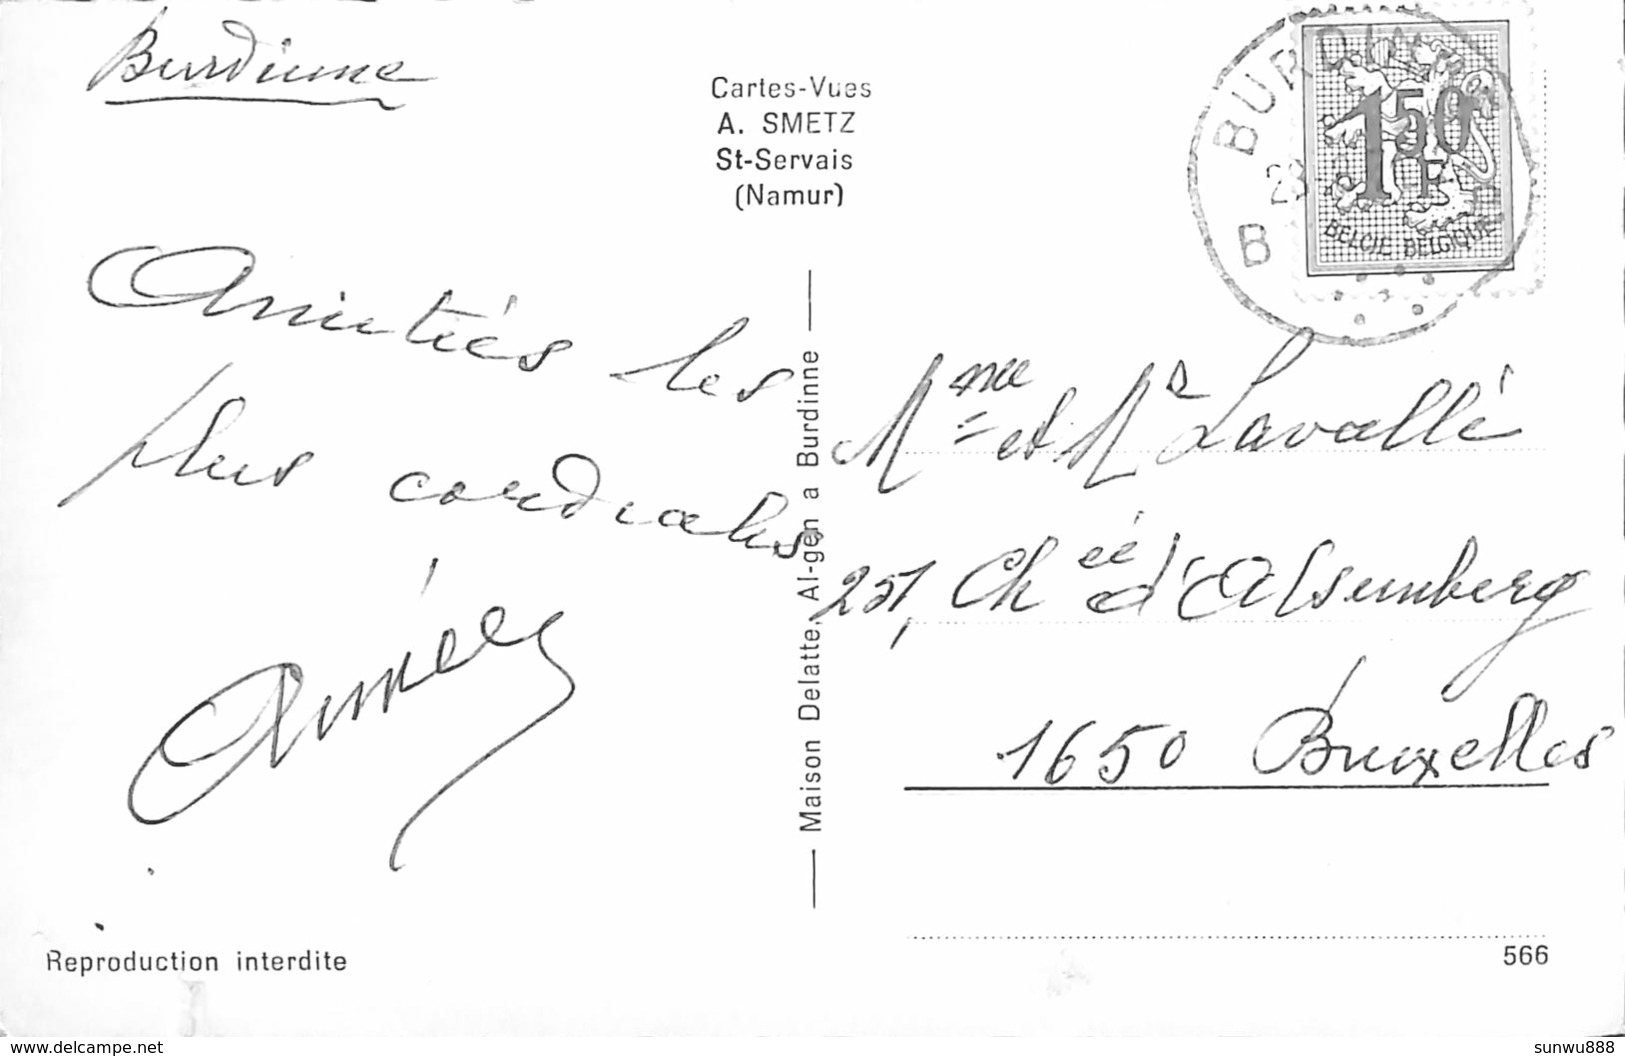 Burdinne
Cartes-Vues
A. SMETZ
St-Servais
(Namur)
BURDIN
23
B
1F50
BELGIE BELGIQUE
Amitiés les
plus cordiales
Aimée
Maison Delatte, Al-gen a Burdinne
Mme et Mr Lavallé
251, Chée d'Alsemberg
1650 Bruxelles
Reproduction interdite
566
www.delcampe.net
sunwu888